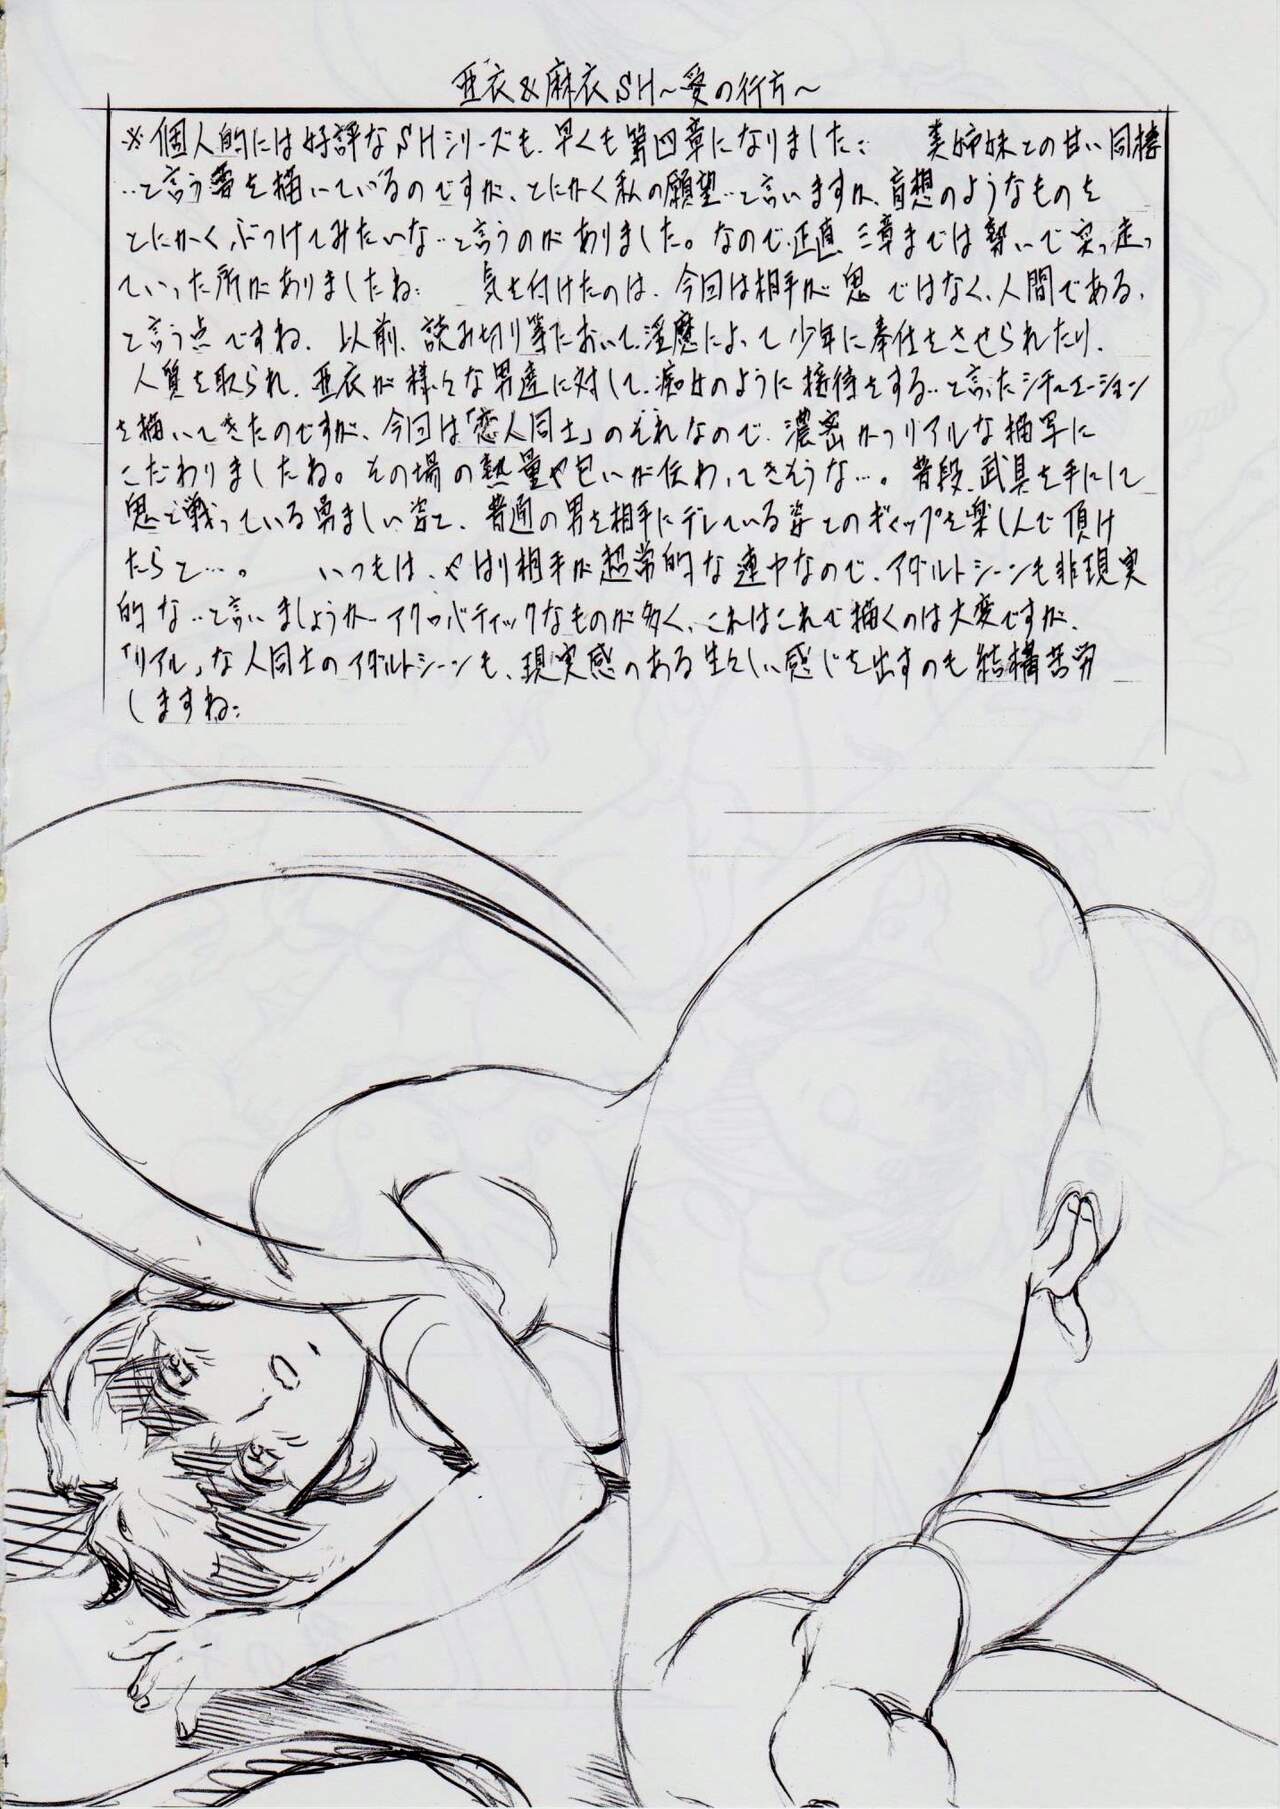 亜衣&麻衣SH～愛の行方～
※個人的には好評なSHシリーズも、早くも第四章になりました; 美姉妹との甘い同棲
…と言う事を描いているのですが、とにかく私の願望…と言いますか、盲想のようなものを
とにかくぶつけてみたいな…と言うのがありました。なので、正直、三章までは勢いで突っ走っ
ていった所がありましたね; 気を付けたのは、今回は相手が鬼ではなく、人間である、
と言う点ですね。以前、読み切り等において、淫魔によって少年に奉仕をさせられたり、
人質を取られ、亜衣が様々な男達に対して、痴女のように接待をする…と言ったシチュエーション
を描いてきたのですが、今回は「恋人同士」のそれなので、濃密かつリアルな描写に
こだわりましたね。その場の熱量や匂いが伝わってきそうな…。普段、武具を手にして
鬼と戦っている勇ましい姿と、普通の男を相手にデレている姿とのギャップを楽しんで頂け
たらと…。 いつもは、やはり相手が超常的な連中なので、アダルトシーンも非現実
的な…と言いましょうか、アクロバティックなものが多く、これはこれで描くのは大変ですが、
「リアル」な人同士のアダルトシーンも、現実感のある生々しい感じを出すのも結構苦労
しますね;
4